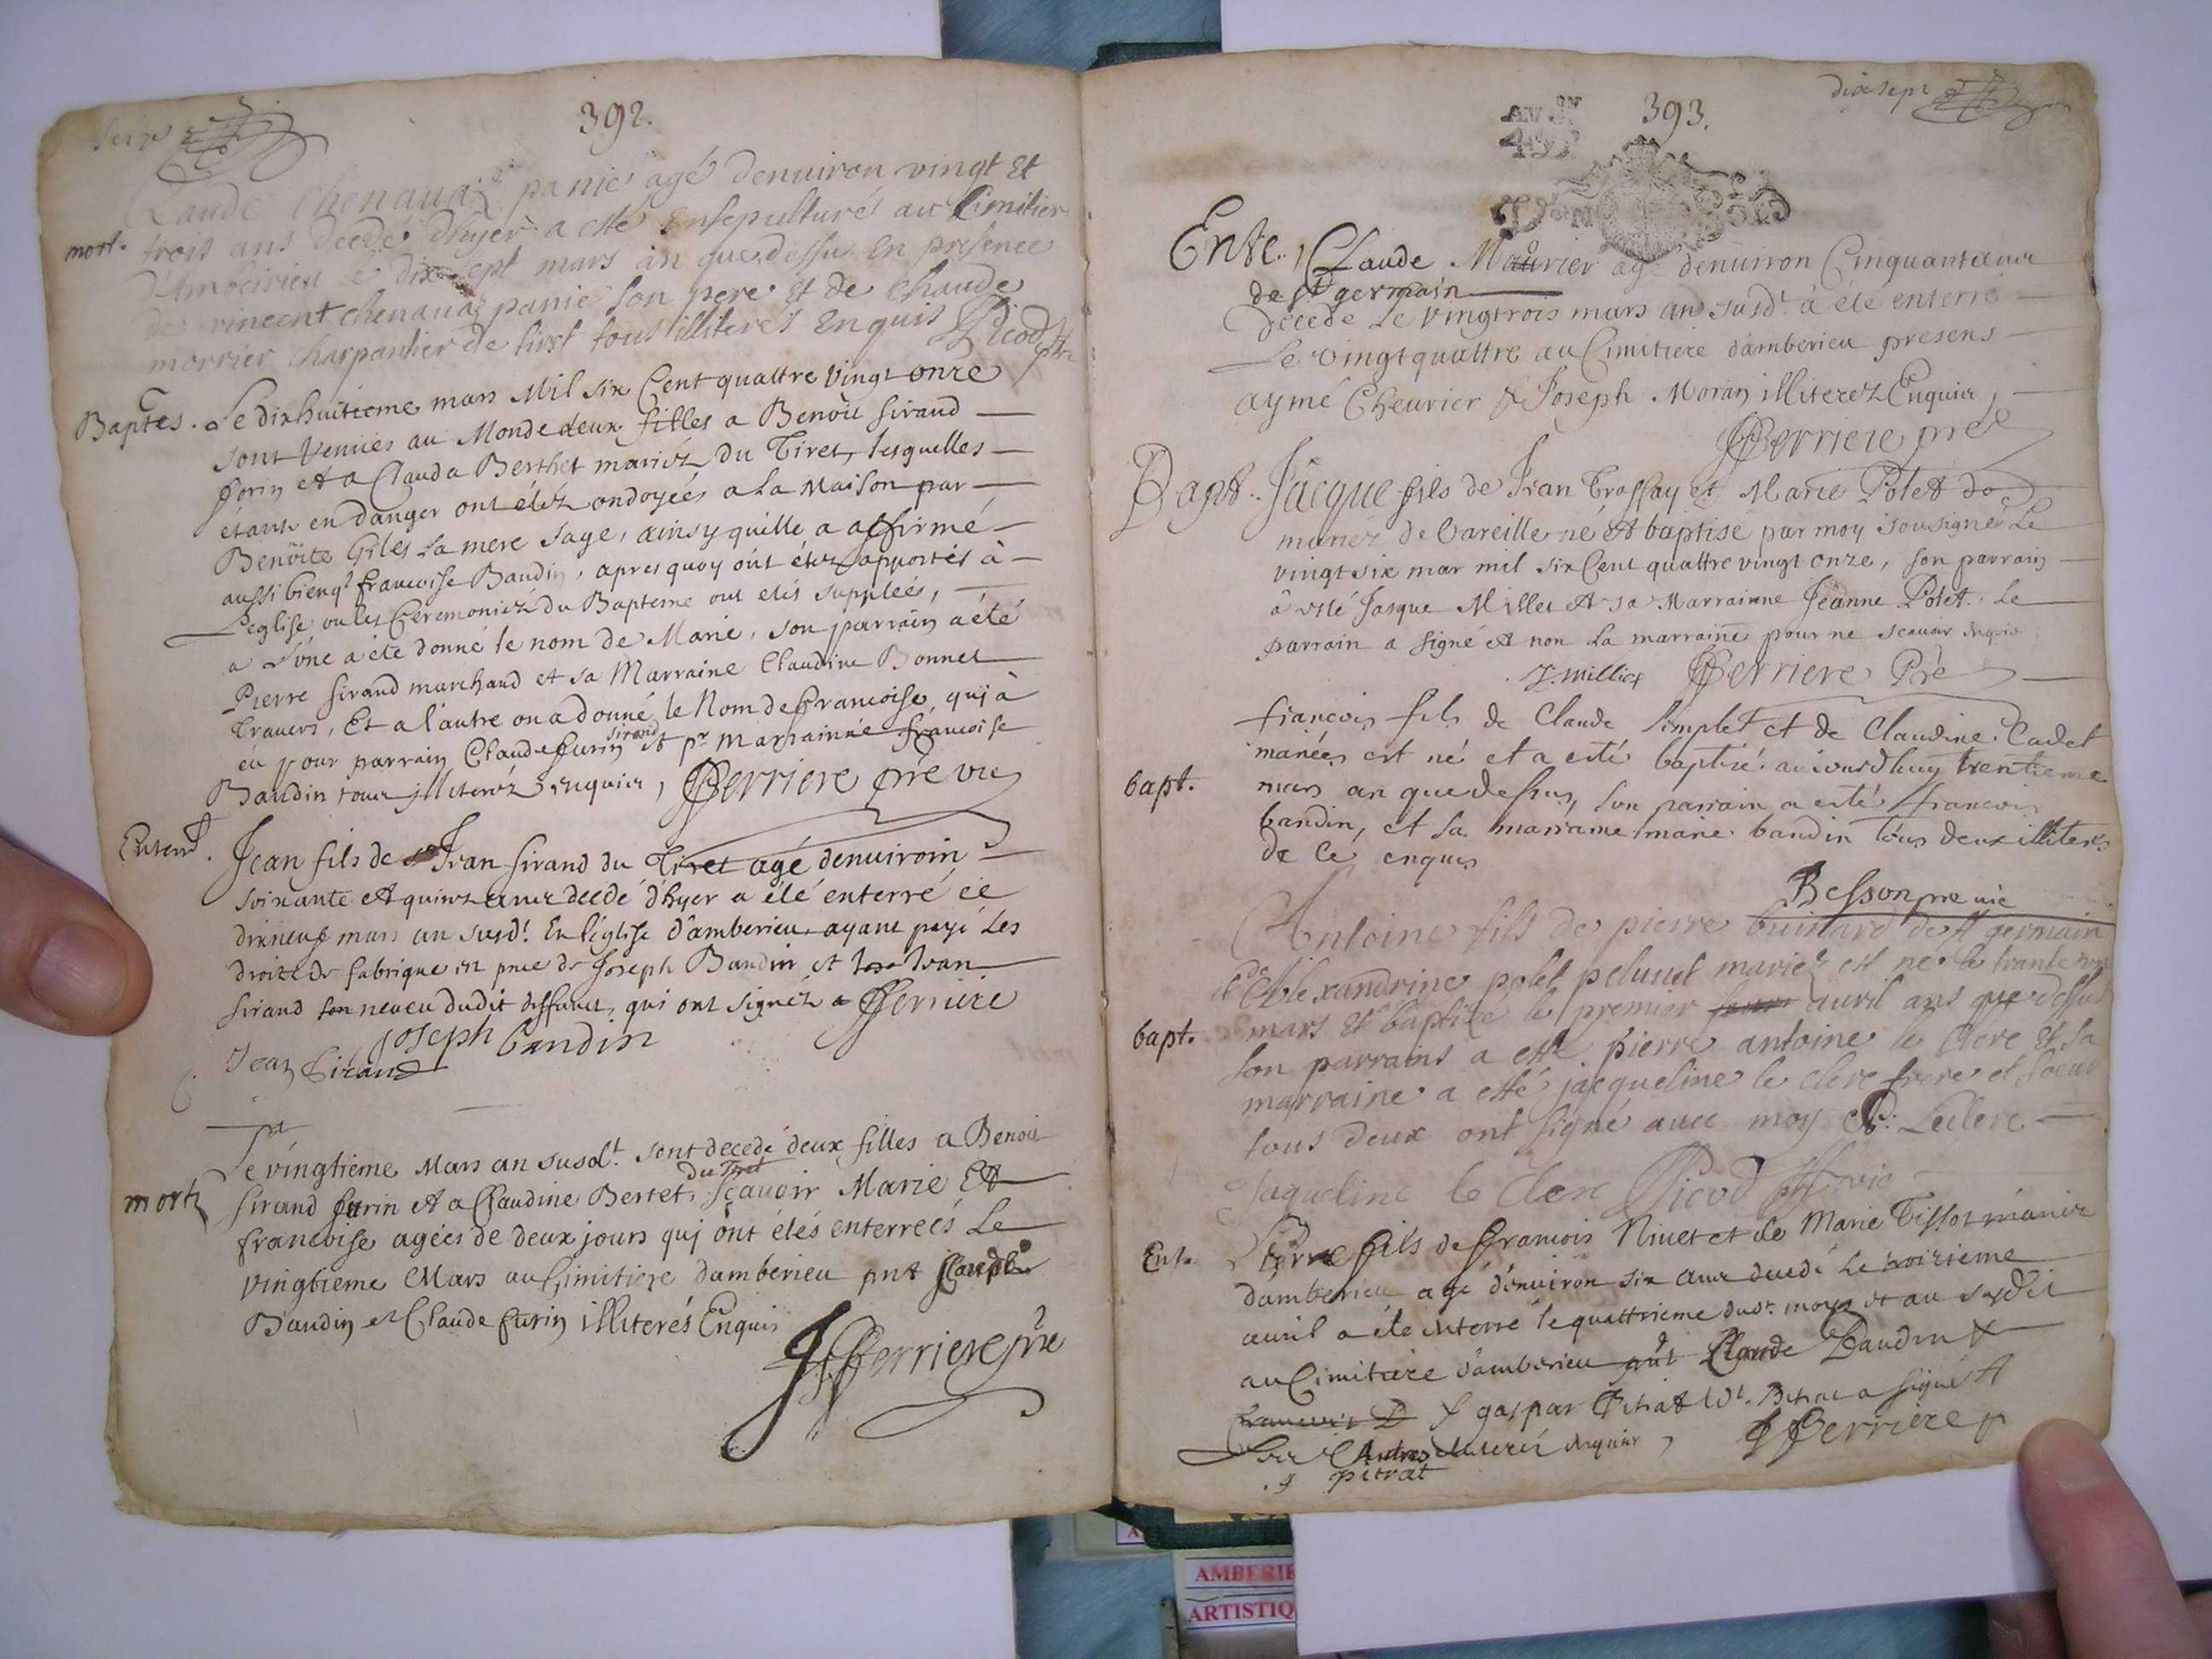 392.
Claude Chenauaz panic agé denuiron vingt et
mort. trois ans decedé d'hyer a esté ensepulturé au Cimitier
d'Ambeirieu le dix sept mars an que dessu en presence
de vincent chenauaz panic son pere et de Claude
morrier charpantier de tiret tous illiterés enquis Picod ptr
Baptes. Le dixhuitieme mars Mil six Cent quattre vingt onze
sont Venües au Monde deux filles a Benoit sirand
furin et a Clauda Berthet mariéz du Tiret, lesquelles
étants en danger ont étéz ondoyées a la Maison par
Benoite Giles sa mere sage, ainsy quille a affirmé
aussi bienq francoise Baudin, apres quoy ont étéz apportés à
L'eglise ou les Ceremoniez du Bapteme ont etés suppléés,
a L'une a été donné le nom de Marie, son parrain a été
Pierre sirand marchand et sa Marraine Claudine Bonnet
Trauers, Et a l'autre on a donné le Nom de francoise, qui à
sirand
eu pour parrain Claude furin et pr marrainne francoise
Baudin tous illiteréz enquis, fferriere pre vic
Enterrt. Jean fils de Jean sirand du Tiret agé denuiroin
soixante et quinze ans decedé d'hyer a été enterré ce
dixneuf mars an susdt. En l'eglise d'amberieu ayant payé Les
droits de fabrique en pnce de Joseph Baudin et Jean
sirand son neueu dudit deffunct, qui ont signéz fferriere
Joseph bandin
Jean Sirand
Le vingtieme Mars an susdt. sont decedé deux filles a Benoit
du Tiret
mortz sirand furin et a Claudine Bertet, scauoir Marie Et
francoise agées de deux jours qui ont étés enterreés Le
vingtieme Mars au Cimitiere damberieu pnt Joseph
Baudin et Claude furin illiterés Enquis
fferriere pre
dixsept
393.
Ente. Claude Maurier agé denuiron Cinquante ans
de st germain
décédé Le vingtrois mars an susdt. à été enterré
Le vingtquattre au Cimitiere d'amberieu presens
aymé Cheurier & Joseph Moran illiterez Enquis,
fferriere pre
Bapt. Jâcque fils de Jean Trossay et Marie Polet
mariez de Vareille né et baptisé par moy sousigné Le
vingt six mar mil six Cent quattre vingt onze, son parrain
à esté Jasque Millet et sa Marrainne Jeanne Polet. Le
parrain a signé et non la marraine pour ne scauoir enquis
J. milliet fferriere Pre
françois fils de Claude simplet et de Claudine Cadet
mariées est né et a esté baptisé aujourdhuy trentieme
bapt. mars an que dessus, son parrain a esté francois
bandin, et sa marraine marie bandin tous deux illiterés
de ce enquis
Besson pre vic
Antoine fils de pierre buinard de st germain
et de Alexandrine polet peluuet mariez est ne le trante
bapt. mars et baptizé le premier auril ans que dessus
son parrains a esté pierre antoine le clerc et sa
marraine a esté jacqueline le clerc frere et soeur
tous deux ont signé auec moy Leclerc
Jaqueline le clerc Picod ptr vic
Ent. Pierre fils de francois Niuet et de Marie Tissot mariéz
d'amberieu agé d'enuiron six ans decedé Le troizieme
auril a été enterré le quattrieme dudt. moys et an susdit
au Cimitiere d'amberieu pnt Claude Baudin &
gaspar Pitrat a signé et
Les Autres illiterés enquis, fferriere p
g pitrat
AMBERIE
ARTISTIQ